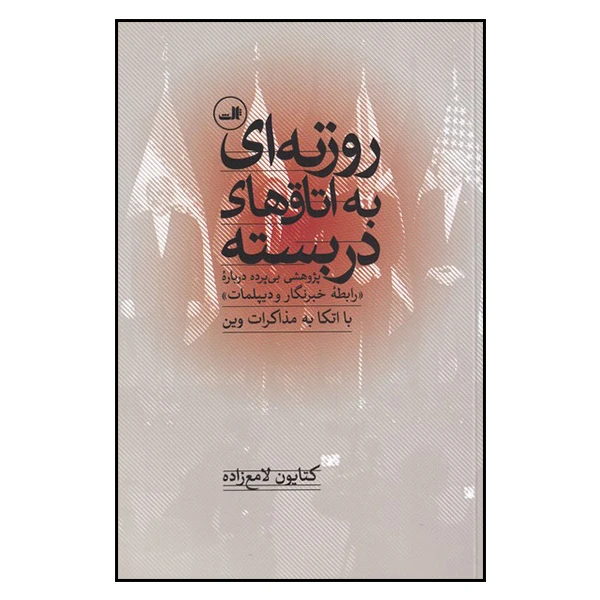 ثالث
روزنه‌ای
به اتاق‌های
دربسته
پژوهشی بی‌پرده دربارهٔ
«رابطهٔ خبرنگار و دیپلمات»
با اتکا به مذاکرات وین
کتایون لامع‌زاده